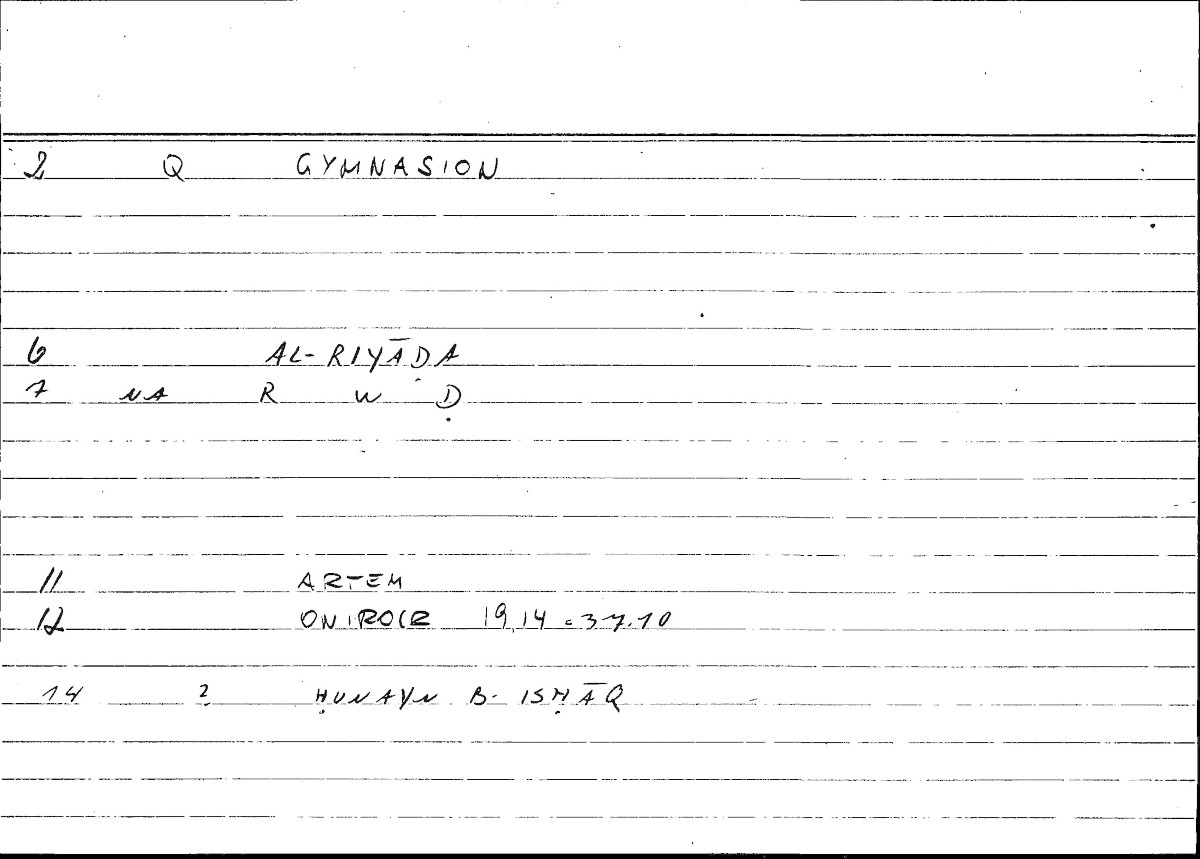 2 Q GYMNASION
6 AL-RIYĀḌA
7 NA R W Ḍ
11 ARTEM
12 ONIROCR 19,14 = 37.10
14 2 ḤUNAYN B- ISḤĀQ